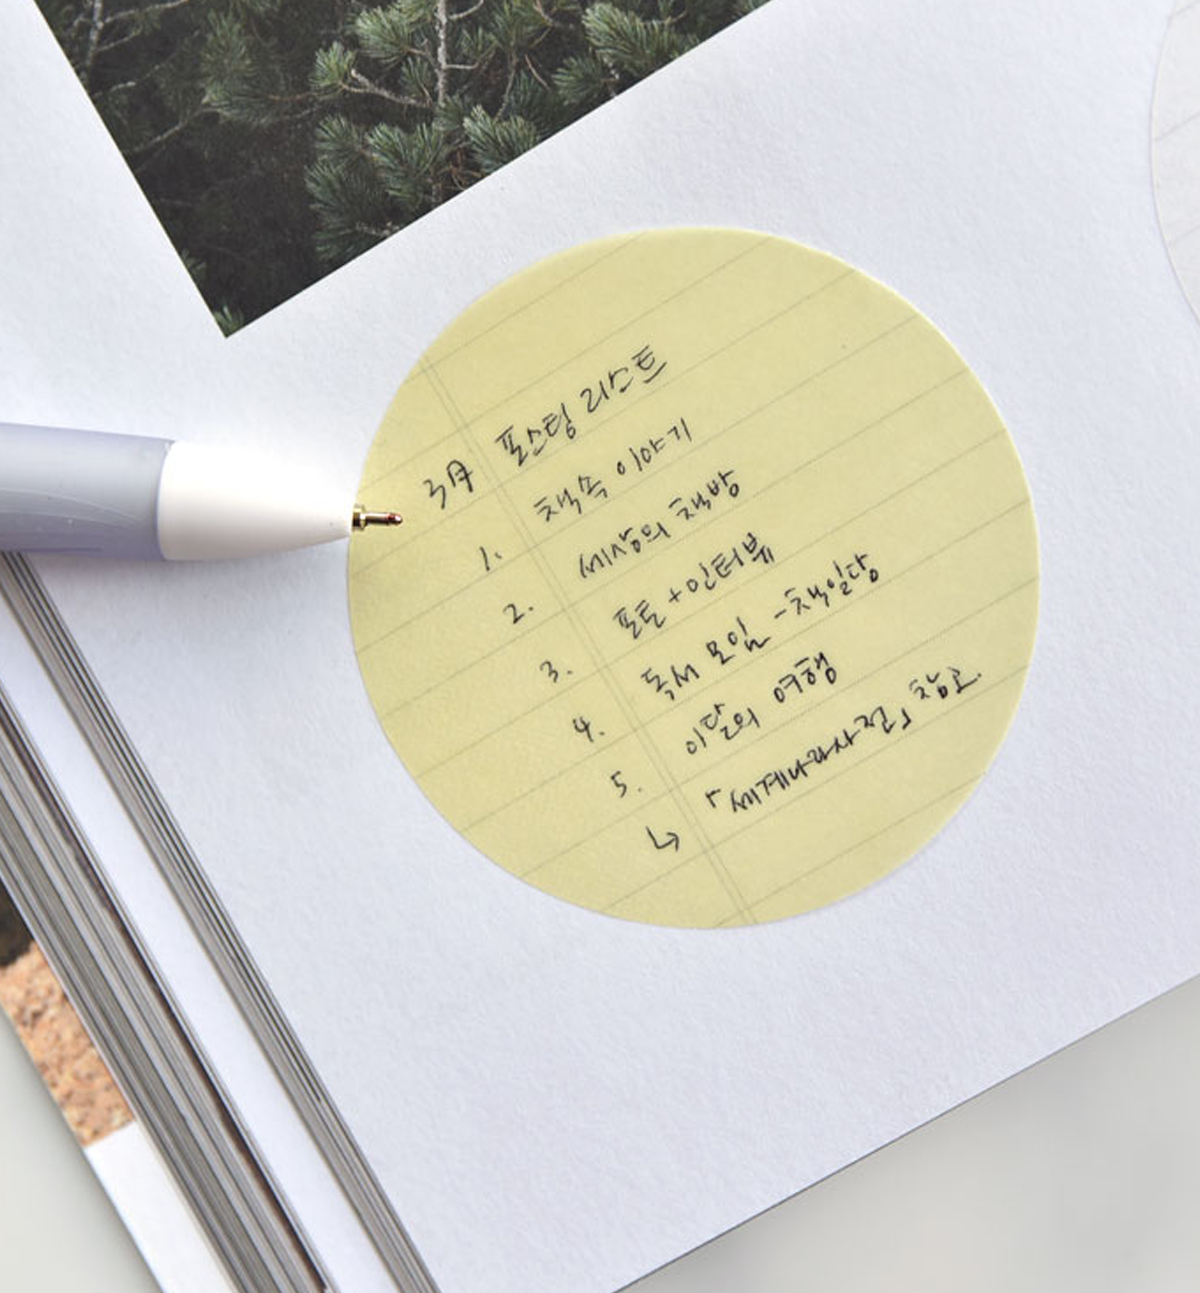 3月 포스팅 리스트
1. 책속 이야기
2. 세상의 책방
3. 포토+인터뷰
4. 독서 모임 - 책일당
5. 이달의 여행
↳ 「세계나라사전」 참고.